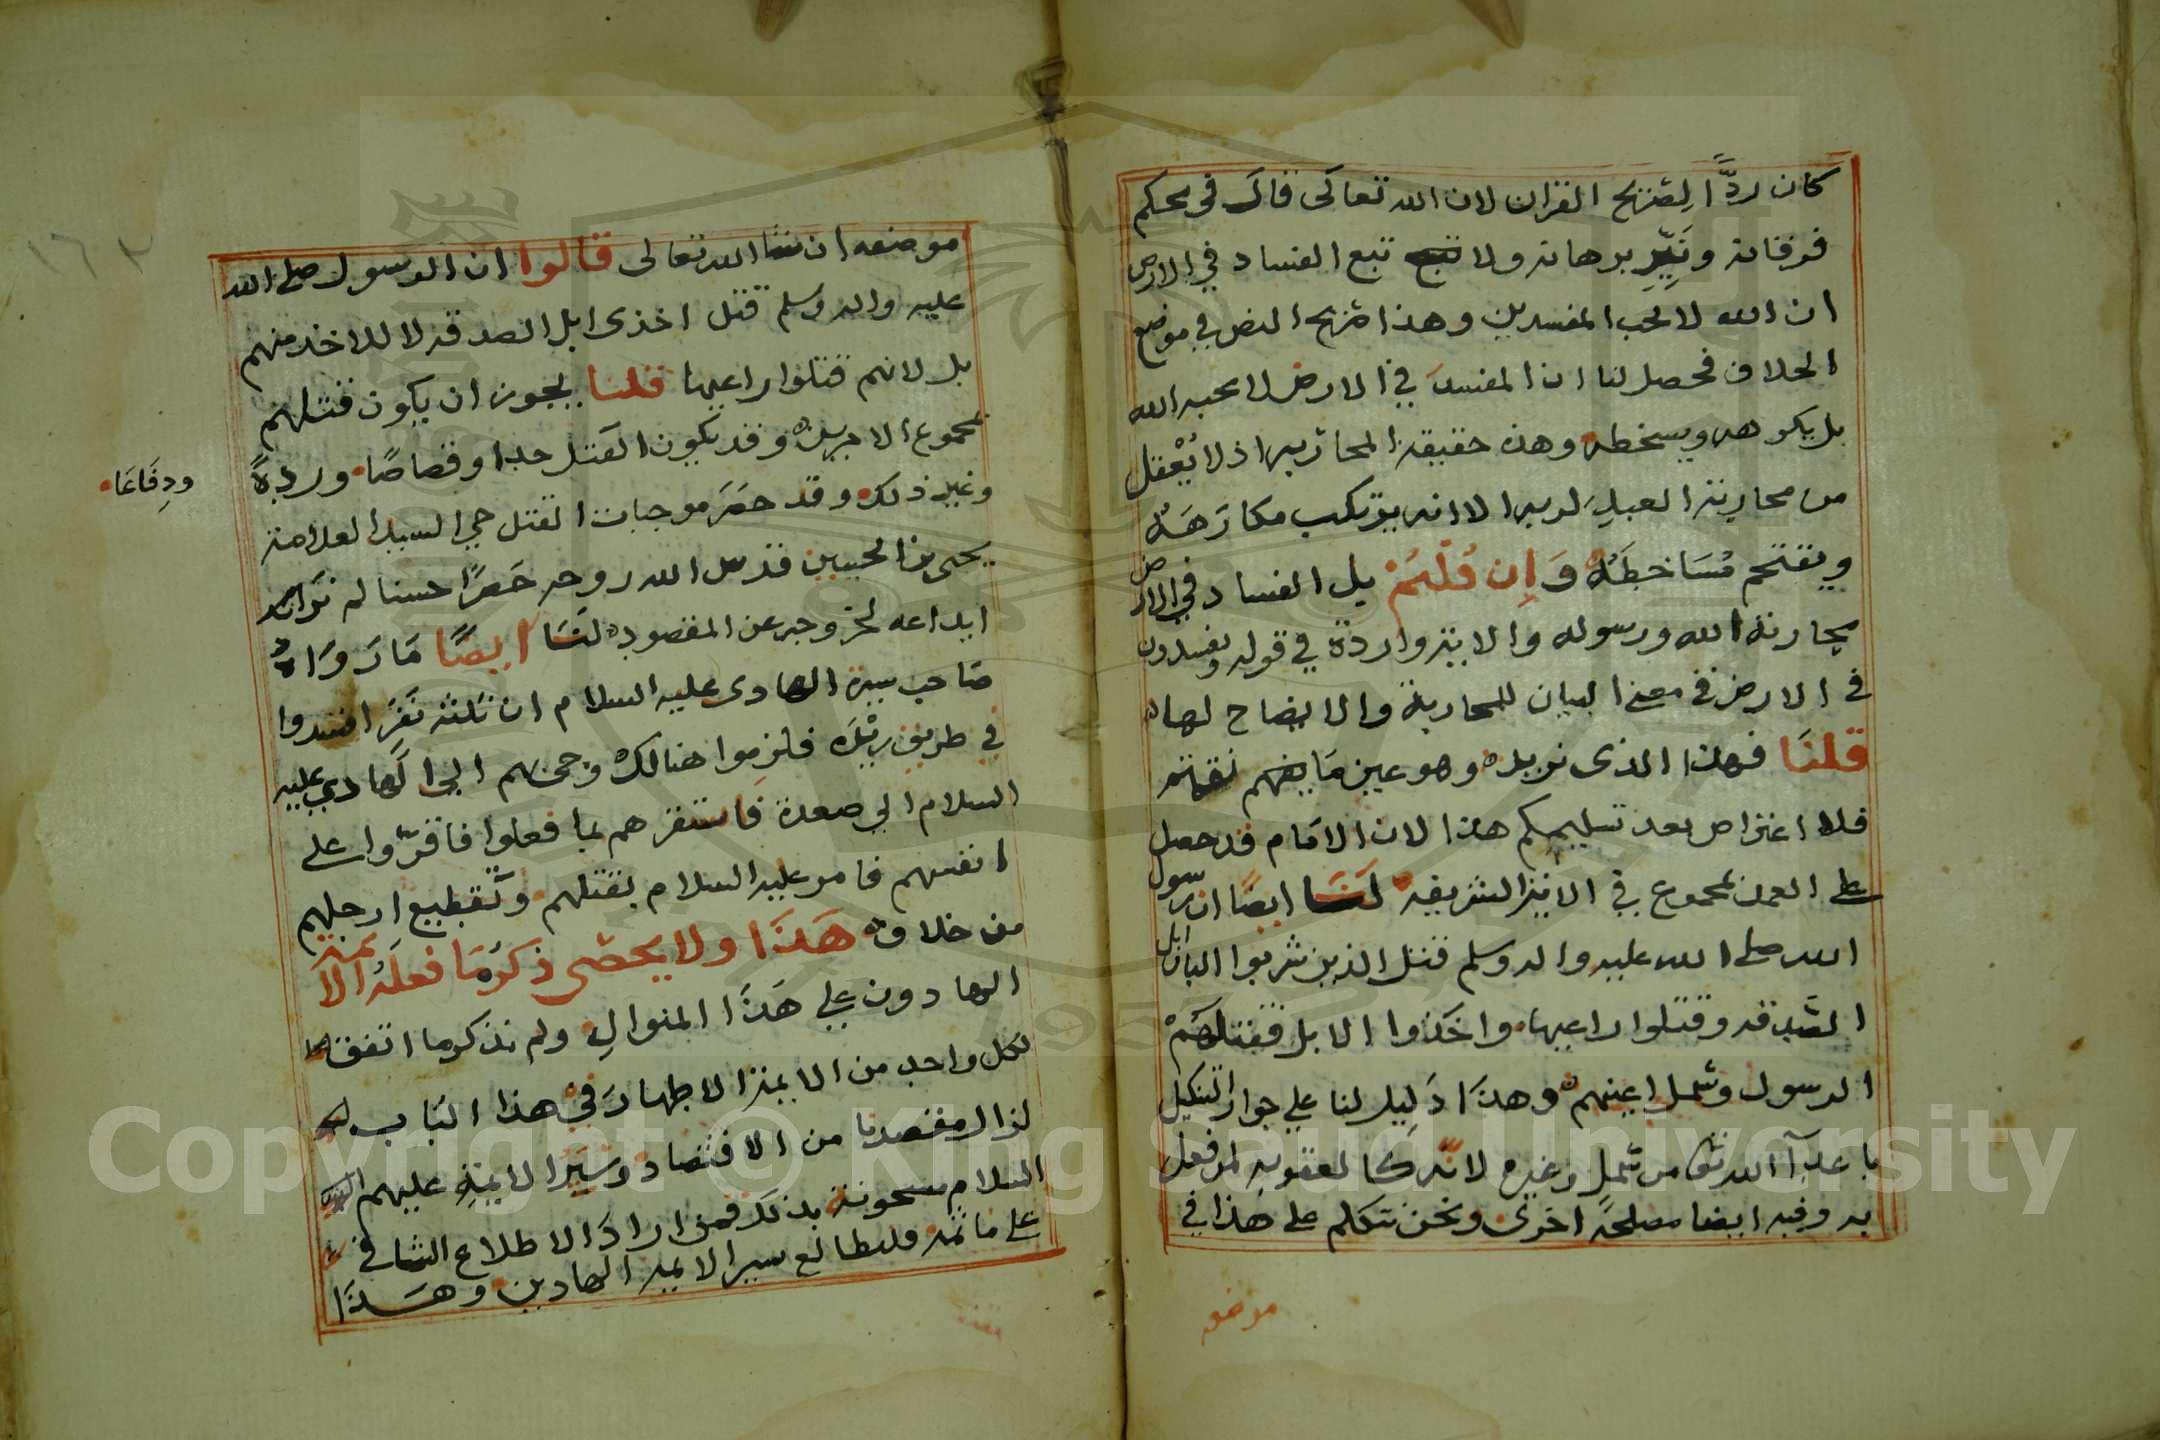 كان ردًّا لصريح القران لان الله تعالى قال في محكم
فرقانه ونَيِّر برهانه ولا تبغ الفساد في الارض
ان الله لا يحب المفسدين وهذا صريح النص في موضع
الخلاف فحصل لنا ان المفسد في الارض لا يحبه الله
بل يكرهه ويسخطه وهذه حقيقة المحاربه اذ لا يُعْقل
من محاربة العبدِ لربه الا انه يرتكب مكارهَهُ
ويقتحم مُسَاخِطَهُ وَاِن قُلْتُمْ بل الفساد في الارض
محاربة الله ورسوله والاية واردة في قوله ويفسدون
في الارض في معنى البيان للمحاربة والايضاح لها
قلنَا فهذا الذى نريده وهو عين مَا
فلا اعتراض بعد تسليمكم هذا لان الامَام قد حصل
على العمل بمجموع في الاية الشريفه لَنَا ايضًا ان رسول
الله صلى الله عليه واله وسلم قتل الذين شربوا البان ابل
الصدقه وقتلوا راعيها واخذوا الابل فقتلهُمْ
الرسول وسمل اعينهم وهذَا دَلِيل لنا على جواز التنكيل
باعدآ الله من سمل وغيره لانه كالعقوبه لمن فعل
به وفيه ايضا مصلحة اخرى ونحن نتكلم على هذا في
موضعه
موضعه ان شا الله تعالى قالوا ان الرسول صلى الله
عليه واله وسلم قتل اخذى ابل الصدقه لا للاخذ منهم
بل لانهم قتلوا راعيها قلنا يجوز ان يكون قتلهم
بمجموع الامرين وقد يكون القتل حدا وقصاصًا وردةً
ودِفَاعًا
وغير ذلك وقد حصَرَ موجبات القتل حي السيد العلامة
يحيى بن الحسين قدس الله روحه حَصرًا حسنا لم نَرَ
ايداعه لخروجه عن المقصود لنَا ايضًا مَا رَوَاهُ
صَاحب سيرة الهادى عليه السلام ان ثلثة نَفَرٍ افسدوا
في طريق فلزموا هنالك وجى بهم الى الهَادي عليه
السلام الي صعدة فاستقرهم بما فعلوا فاقرّوا على
انفسهم فامر عليه السلام بقتلهم وتقطيع ارجلهم
من خلاف هَذَا ولا يحصى ذكرُ مَا فعلَهُ الائمة
الهادون على هَذَا المنوالِ ولم نذكر ما اتفق
لكل واحد من الايمة الاطهار في هذا البَاب
لذا لمقصدنا من الاقتصاد وسِيَر الايمة عليهم
السلام مشحونة بذلك فمن ارادَ الاطلاع الشافى
على ما ثمه فليطالع سير الايمه الهادين وهَذَا